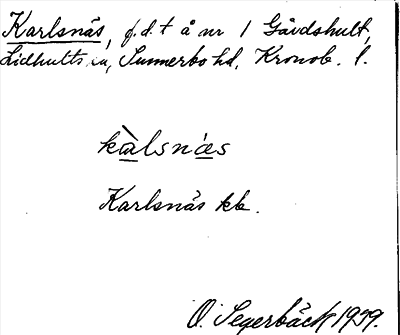 Karlsnäs, f.d. t å nr 1 Gårdshult,
Lidhults sn, Sunnerbo hd, Kronob. l.
kàlsnǽs
Karlsnäs kb.
O. Segerbäck 1939.